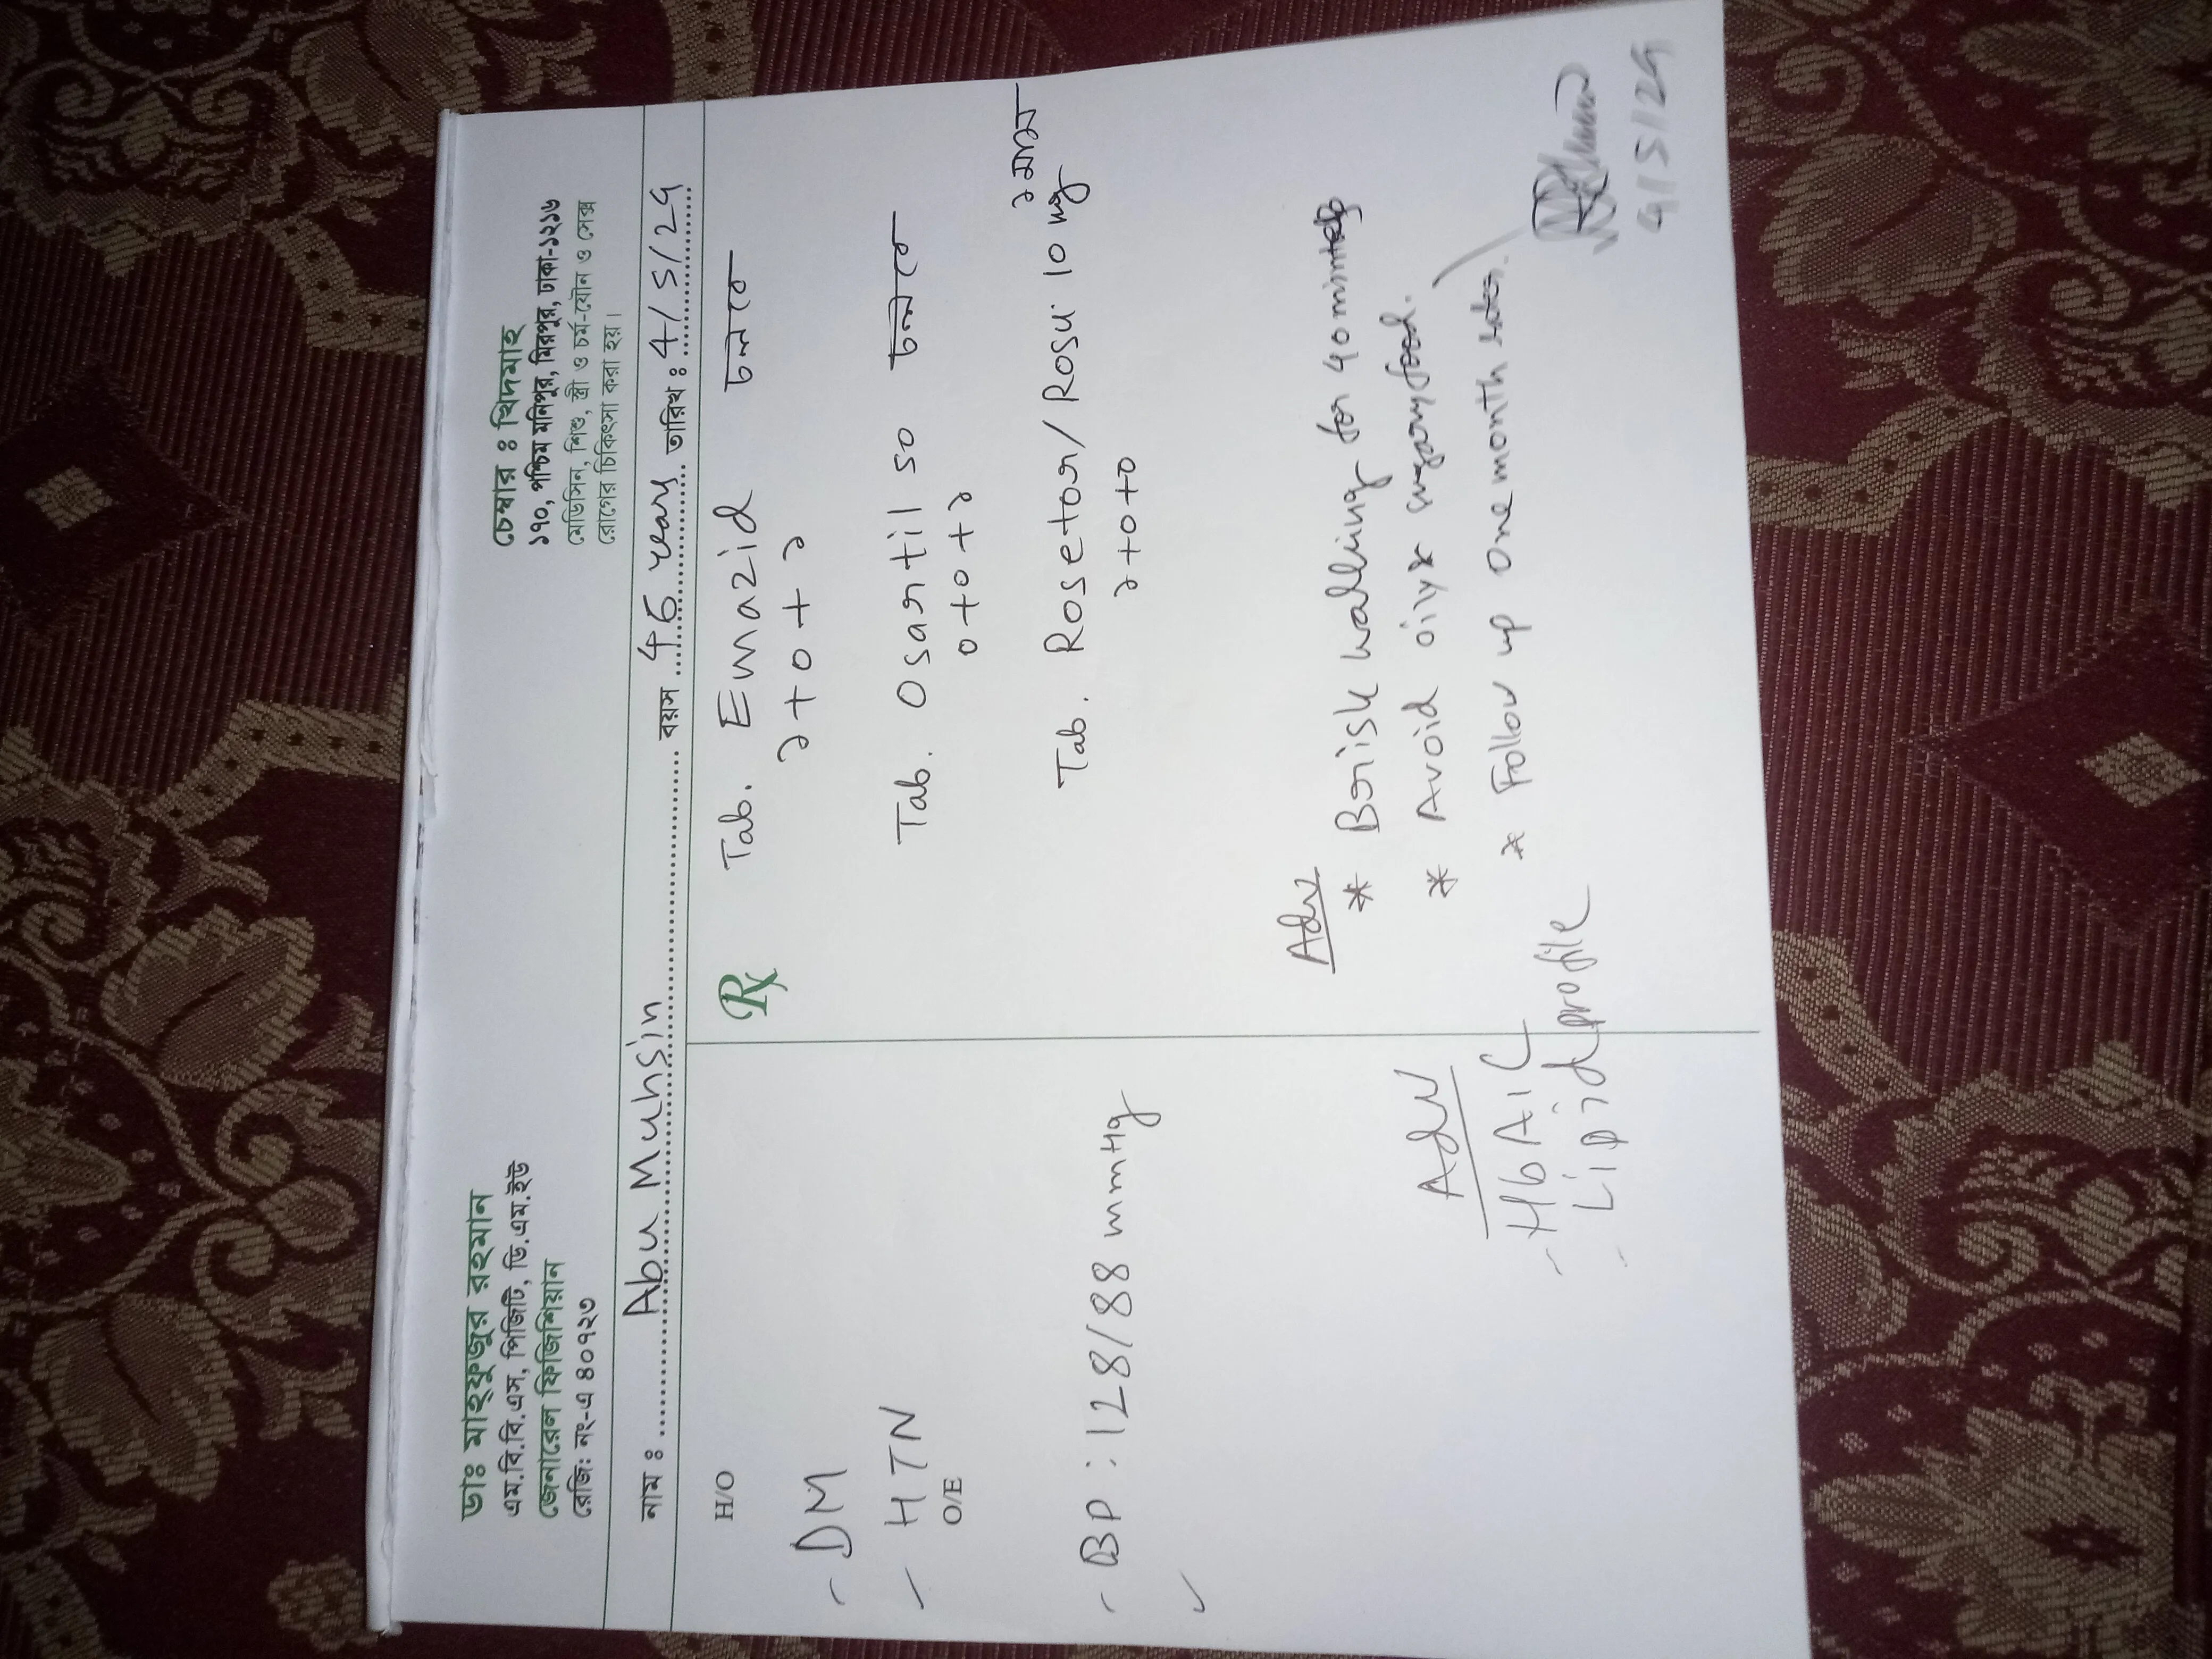 ডাঃ মাহ্ফুজুর রহমান
এম.বি.বি.এস, পিজিটি, ডি.এম.ইউ
জেনারেল ফিজিশিয়ান
রেজি: নং-এ ৪০৭২৩
চেম্বার ঃ খিদমাহ
১৭০, পশ্চিম মনিপুর, মিরপুর, ঢাকা-১২১৬
মেডিসিন, শিশু, স্ত্রী ও চর্ম-যৌন ও সেক্স
রোগের চিকিৎসা করা হয়।
নাম ঃ Abu Muhsin বয়স 46 years তারিখ ঃ 4/5/24
H/O
- DM
- HTN
O/E
- BP : 128/88 mmHg
Adv
- HbA1C
- Lipid profile
Rx
Tab. Emazid চলবে
১+০+১
Tab. Osartil 50 চলবে
০+০+১
Tab. Rosetor/Rosu 10 mg ১ মাস
১+০+০
Adv
* Brisk walking for 40 mints
* Avoid oily & sugary food.
* Follow up one month
4/5/24